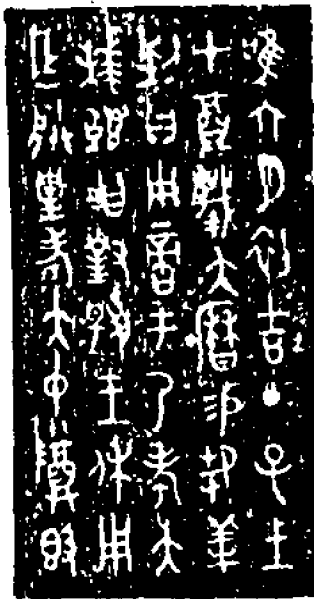 隹六月初吉丁巳王
才奠蔑大曆易芻羊
犅曰用啻于乃考大
拜稽首對揚王休用
乍朕皇考大中尊𣪘